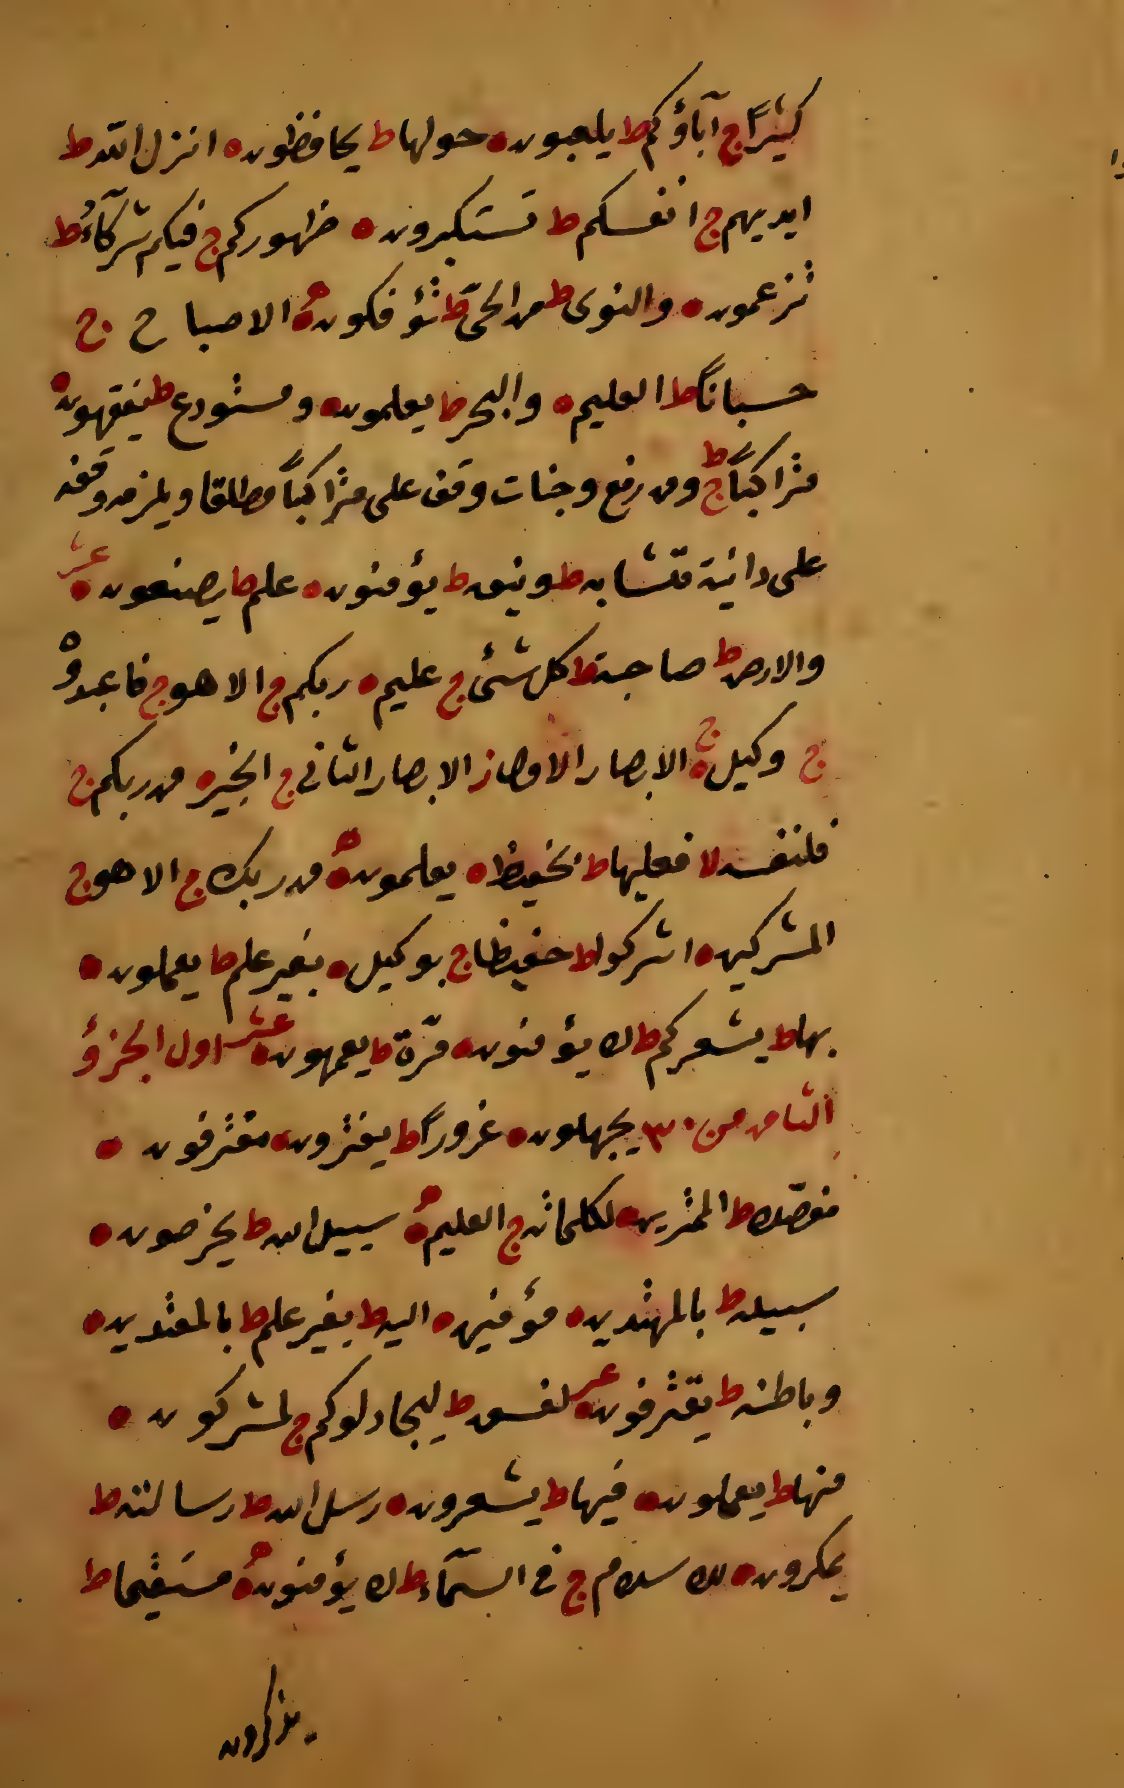 كثيرًا ج آباؤكم ط يلعبون ه حولها ط يحافظون ه انزل الله ط
ايديهم ج انفسكم ط تستكبرون ه ظهوركم ج فيكم شركآءُ ط
تزعمون ه والنوى ط من الحىّ ط تؤفكون ه الاصباح ج ج
حسبانًا ط العليم ه والبحر ط يعلمون ه ومستودع ط يفقهون ه
متراكبًا ج ط ومن رفع وجنات وقف على متراكبًا مطلقا ويلزمه وقفه
على دانية متشابه ط وينعه ط يؤمنون ه علم ط يصنعون ه عشر
والارض ط صاحبة ط كل شئ ج عليم ه ربكم ج الا هو ج فاعبدوه
ج وكيل ه ج الابصار الاول ز الابصار الثانى ج الخبير ه من ربكم ج
فلنفسه لا فعليها ط بحفيظ ه يعلمون ه من ربك ج الا هو ج
المشركين ه اشركوا ط حفيظا ج بوكيل ه بغير علم ط يعملون ه
بها ط يشعركم ط لا يؤمنون ه مرّة ط يعمهون ه عشر اول الجزؤ
الثامن من ٣٠ يجهلون ه غرورًا ط يفترون ه مقترفون ه
مفصّلا ط الممترين ه لكلماته ج العليم ه سبيل الله ط يخرصون ه
سبيله ط بالمهتدين ه مؤمنين ه اليه ط بغير علم ط بالمعتدين ه
وباطنه ط يقترفون ه عشر لفسق ط ليجادلوكم ج لمشركون ه
منها ط يعملون ه فيها ط يشعرون ه رسل الله ط رسالته ط
يمكرون ه للاسلام ج فى السمآء ط لا يؤمنون ه مستقيما ط
يذكرون